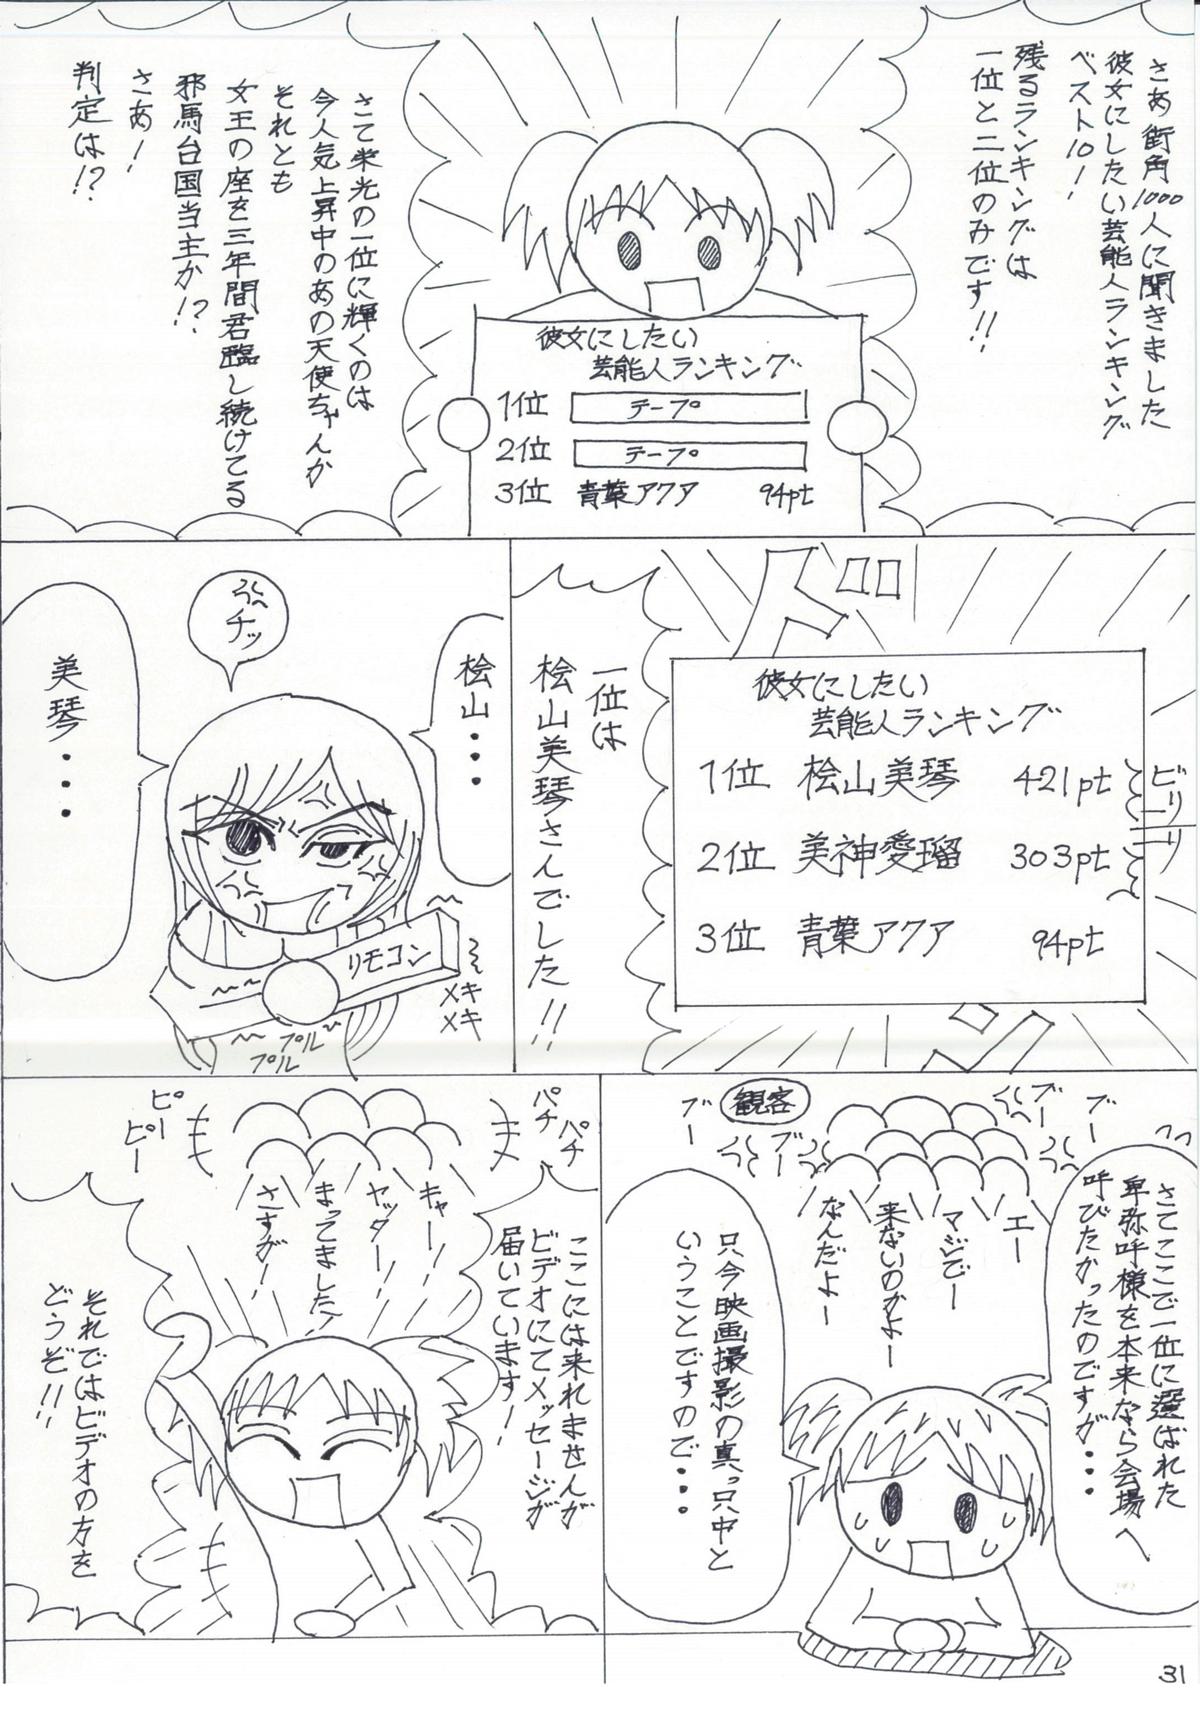 さあ街角1000人に聞きました
彼女にしたい芸能人ランキング
ベスト10!
残るランキングは
一位と二位のみです!!
彼女にしたい
芸能人ランキング
1位 テープ
2位 テープ
3位 青葉アクア 94pt
さて栄光の一位に輝くのは
今人気上昇中のあの天使ちゃんか
それとも
女王の座を三年間君臨し続けてる
邪馬台国当主か!?
さあ!
判定は!?
ドドン
彼女にしたい
芸能人ランキング
1位 桧山美琴 421pt
2位 美神愛瑠 303pt
3位 青葉アクア 94pt
ビリリ
一位は
桧山美琴さんでした!!
桧山・・・
チッ
美琴・・・
リモコン
メキ
メキ
プル
プル
さてここで一位に選ばれた
卑弥呼様を本来なら会場へ
呼びたかったのですが・・・
観客
ブー
ブー
ブー
ブー
エー
マジでー
来ないのかよー
なんだよー
只今映画撮影の真っ只中と
いうことですので・・・
パチ
パチ
ピー
ピー
キャー!
ヤッター!
まってました!
さすが!
ここには来れませんが
ビデオにてメッセージが
届いています!
それではビデオの方を
どうぞ!!
31